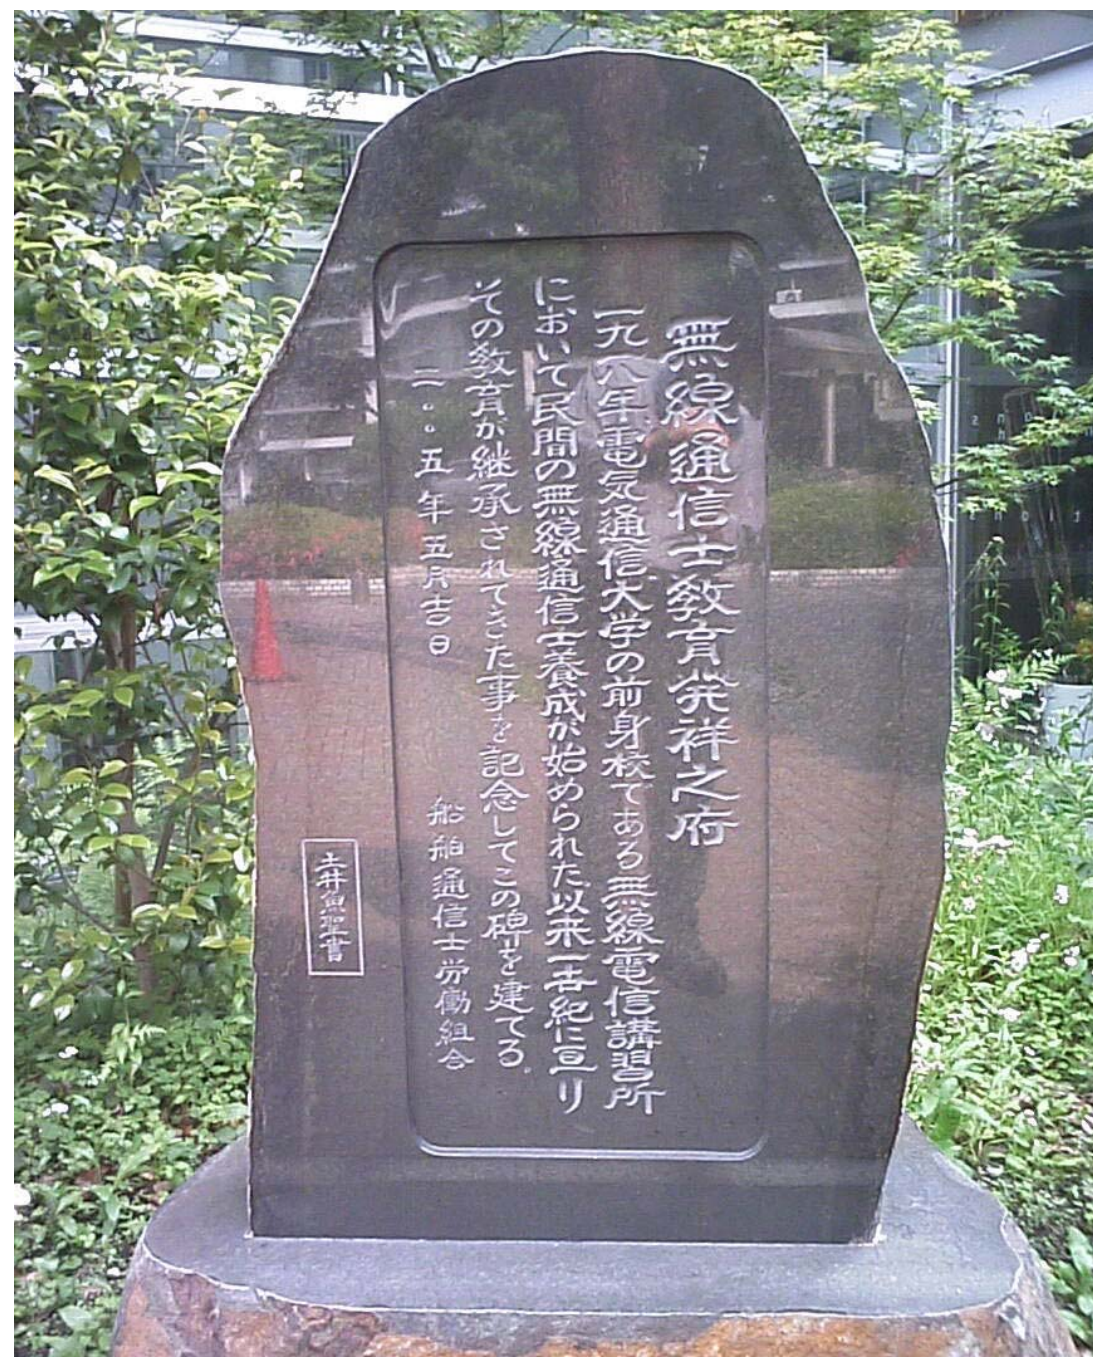 無線通信士教育発祥之府
一九一八年電気通信大学の前身校である無線電信講習所
において民間の無線通信士養成が始められた以来一世紀に亘り
その教育が継承されてきた事を記念してこの碑を建てる。
二〇〇五年五月吉日
船舶通信士労働組合
土井魚聖書